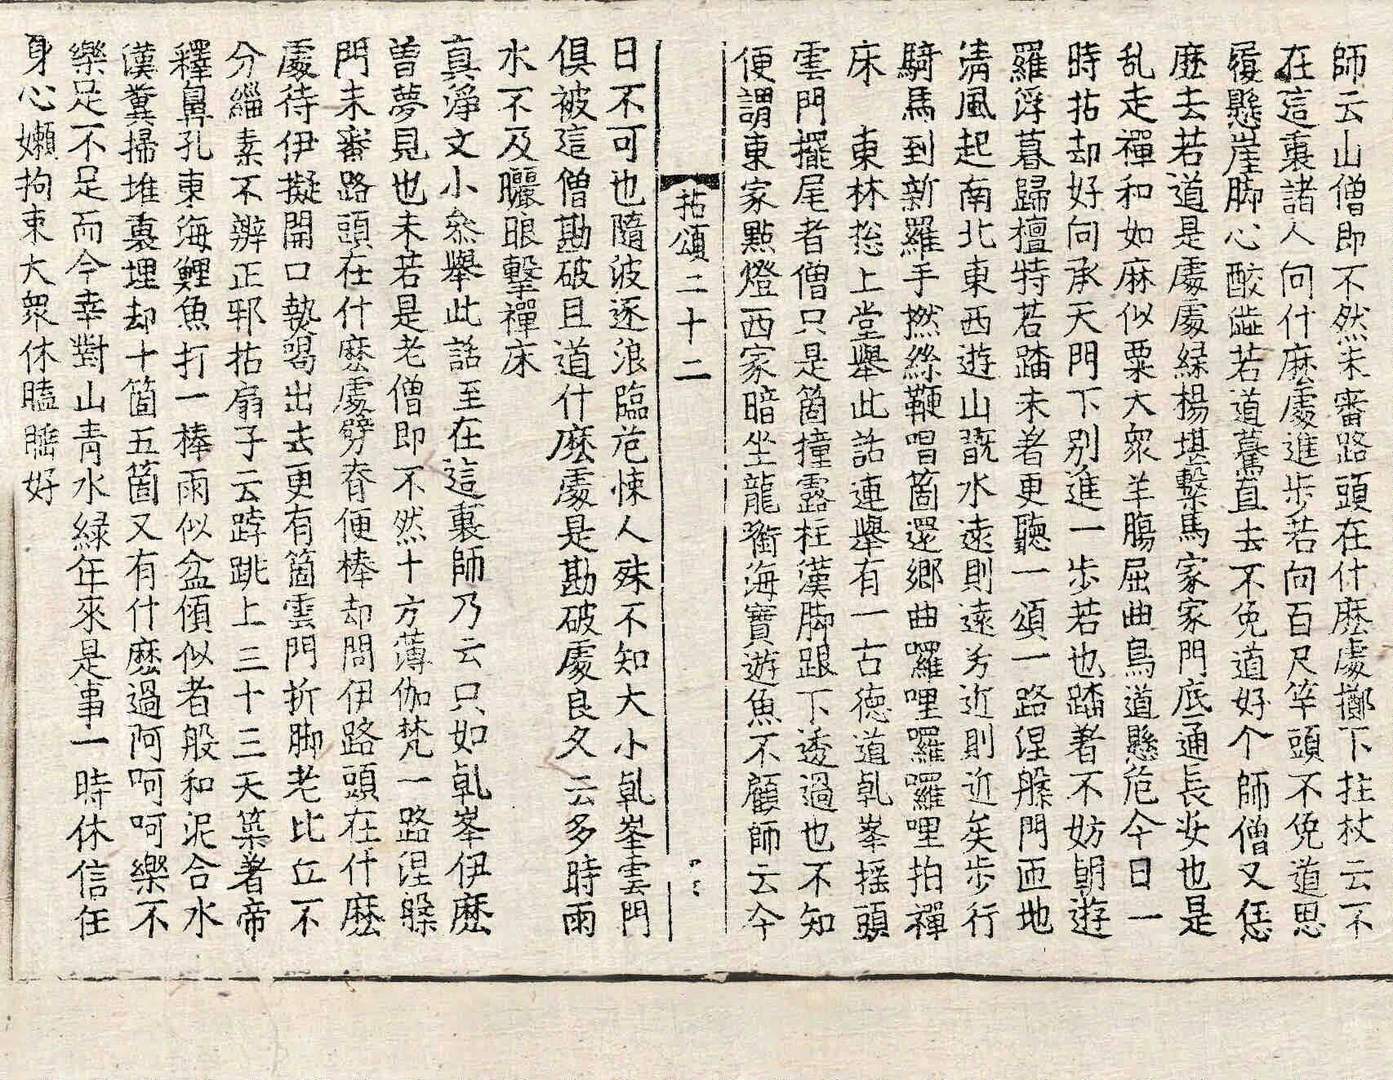 師云山僧即不然未審路頭在什麽處擲下拄杖云不
在這裏諸人向什麽處進步若向百尺竿頭不免道思
履懸崖脚心酸澁若道驀直去不免道好个師僧又恁
麽去若道是處處緑楊堪繫馬家家門底通長安也是
乱走禪和如麻似粟大衆羊腸屈曲鳥道懸危今日一
時拈却好向承天門下别進一步若也踏著不妨朝遊
羅浮暮歸檀特若踏未著更聽一頌一路涅槃門匝地
清風起南北東西遊山翫水遠則遠兮近則近矣步行
騎馬到新羅手撚絲鞭唱箇還鄉曲囉哩囉囉哩拍禪
床　東林捴上堂舉此話連舉有一古德道乹峯揺頭
雲門擺尾者僧只是箇撞露柱漢脚跟下透過也不知
便謂東家點燈西家暗坐龍銜海寶遊魚不顧師云今
拈頌二十二
日不可也隨波逐浪臨危悚人殊不知大小乹峯雲門
俱被這僧勘破且道什麽處是勘破處良久云多時雨
水不及曬眼擊禪床
真淨文小叅舉此話至在這裏師乃云只如乹峯伊麽
曽夢見也未若是老僧即不然十方薄伽梵一路涅槃
門未審路頭在什麽處劈脊便棒却問伊路頭在什麽
處待伊擬開口熱喝出去更有箇雲門折脚老比丘不
分緇素不辨正邪拈扇子云踍跳上三十三天築著帝
釋鼻孔東海鯉魚打一棒雨似盆傾似者般和泥合水
漢糞掃堆裏埋却十箇五箇又有什麽過阿呵呵樂不
樂足不足而今幸對山青水緑年來是事一時休信任
身心嬾拘束大衆休瞌睡好